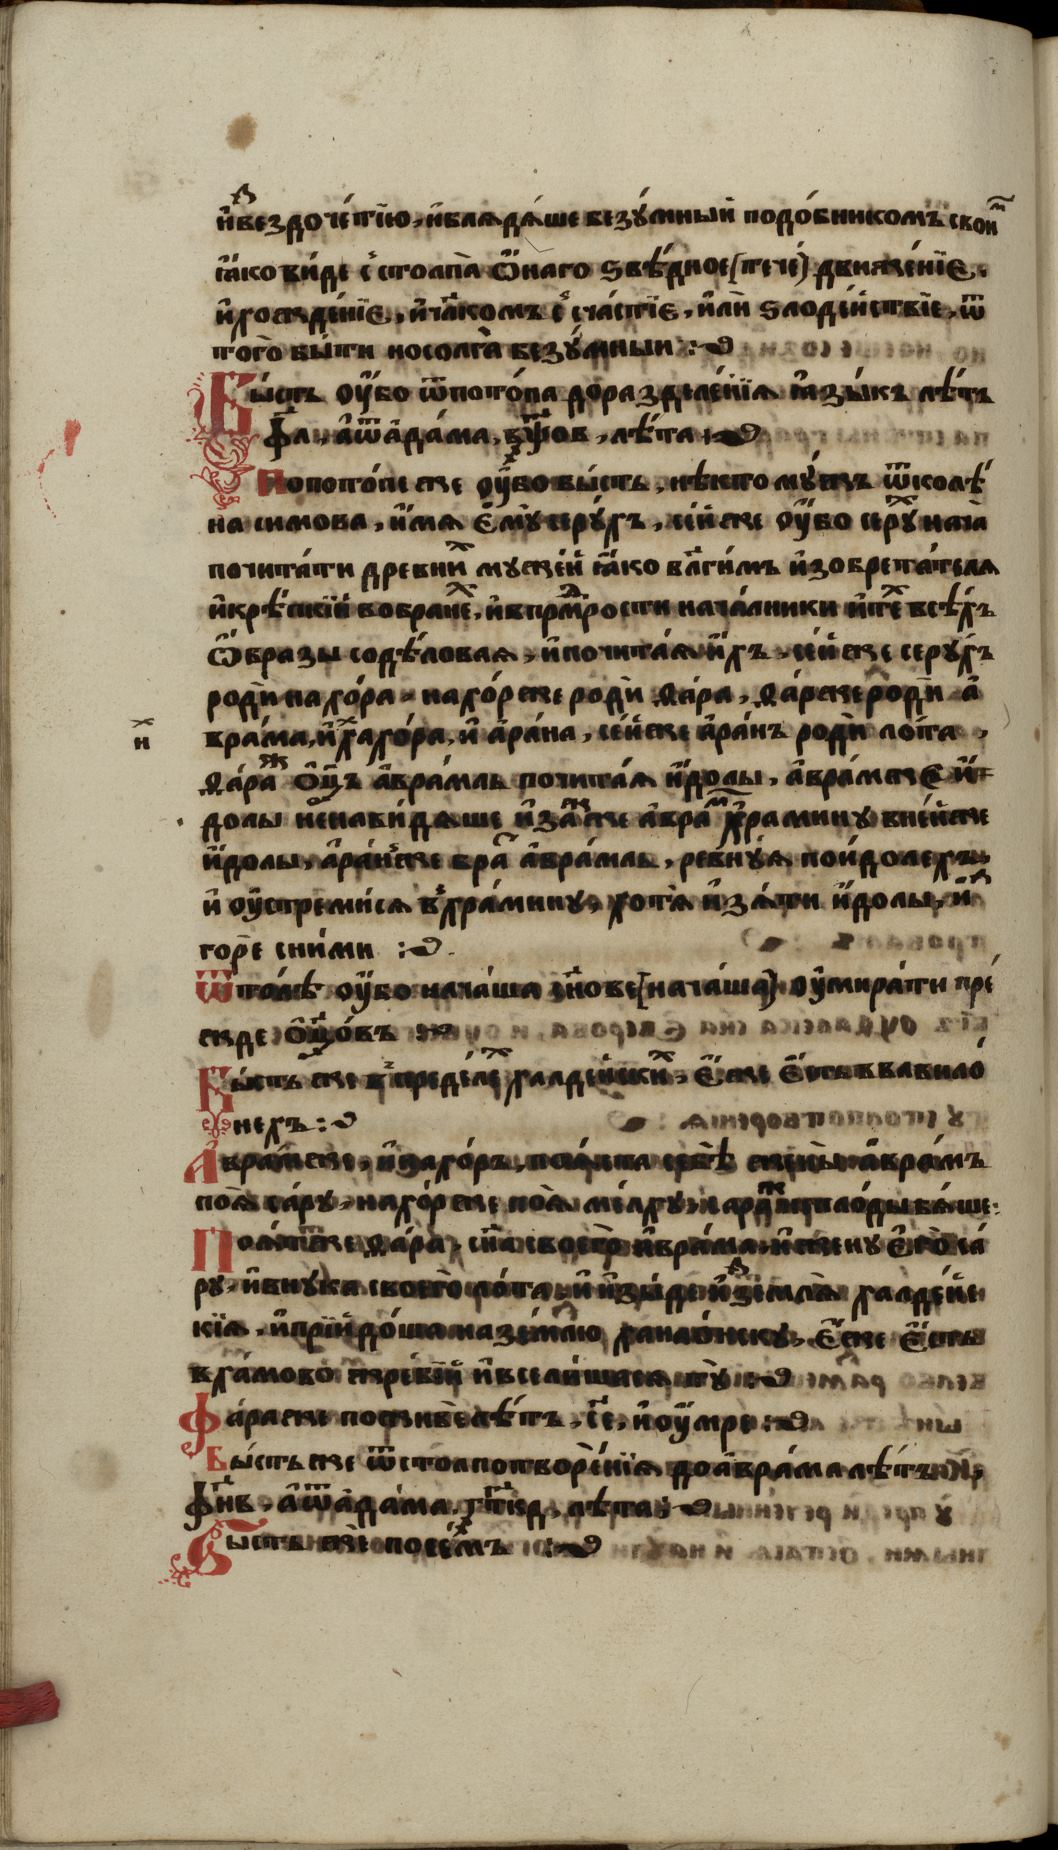 и҆ѕвездоче́тїю, и҆блѧдѧ́ше безꙋ́мный подо́бникомъ свои҆мъ
ꙗ҆ко ви́де с̾столпа̀ ѡ҆́наго ѕвѣ́дное (тече́) движе́нїе.
и҆хожде́нїе, и҆ ча́комъ с̾сча́стїе, и҆лѝ ѕлоде́йствїе, ѿ
того̀ бы́ти но солга̀ безꙋ́мныи :
Бы́сть ᲂу҆́бо ѿпото́па до разделе́нїѧ ꙗ҆зы́къ лѣ́тъ
фл҃а, а҆ ѿа҆да́ма, вѱ҃ов, лѣ́та :
По пото́пе же ᲂу҆́бо бы́сть, нѣ́кто мꙋ́жъ ѿ колѣ́
на симова, и҆́мѧ є҆мꙋ̀ серꙋ́хъ, се́й же ᲂу҆́бо серꙋ́х нача̀
почита́ти древни́х мꙋже́й ꙗ҆́ко бл҃ги́мъ и҆зобрета́телѧ
и҆ крѣ́пкїй во бране́х, и҆ в премꙋ́дрости нача́лники и҆ тѣ́х всѣ́хъ
ѻ҆́бразы содѣ́ловаѧ, и҆ почита́ѧ и҆́хъ. се́й же серꙋ́хъ
родѝ нахо́ра. нахо́р же родѝ ѳа́ра, ѳа́р же родѝ а҆
вра́ма, и҆ нахо́ра, и҆ а҆ра́на, се́й же а҆ра́нъ родѝ ло́та,
н
ѳа́ра же ѻ҆ц҃ъ а҆вра́мль почита́ѧ и҆́долы, а҆вра́м же и҆́
долы ненави́дѧше и҆ зажже́ а҆вра́м хра́минꙋ в не́й же
и҆́долы, а҆ра́н же бра́т а҆вра́мль, ревнꙋ́ѧ по и҆́долехъ,
и҆ ᲂу҆стреми́сѧ в̾ хра́минꙋ, хотѧ̀ и҆зѧ́ти и҆́долы, и҆
згорѐ с ни́ми :
Ѿтолѣ̀ ᲂу҆́бо нача́ша сн҃ове (нача́ша) ᲂу҆мира́ти пре́
жде ѻ҆ц҃о́въ :
Бы́сть же в̾ преде́ле́х халде́йских, є҆́же є҆́сть в вавило́
нехъ :
А҆вра́м же, и҆ нахо́ръ, поѧ́ста себѣ̀ жены̀ а҆вра́мъ
поѧ̀ са́рꙋ, нахо́р же поѧ̀ ме́лхꙋ, са́ра же непло́ды бѧ́ше.
Поѧ́т же ѳа́ра, сн҃а своего̀ а҆вра́ма, и҆ женꙋ̀ є҆го̀ са́
рꙋ, и҆ внꙋ́ка своего̀ ло́та, и҆ и҆зы́де и҆з землѧ̀ халде́йс
кїѧ, и҆ прїидо́ша на зе́млю ханао́нскꙋ, є҆́же є҆́сть
в ха́мово жре́бїй и҆ всели́шасѧ тꙋ̀ :
Ѳа́ра же пожиⷡ҇ лѣ́тъ, с҃е, и҆ ᲂу҆́мре :
Бы́сть же ѿ столпотворе́нїѧ до а҆вра́ма лѣ́тъ,
фн҃в. а҆ ѿа҆да́ма, гт҃кд, лѣ́та :
Бы́сть же по се́мъ :